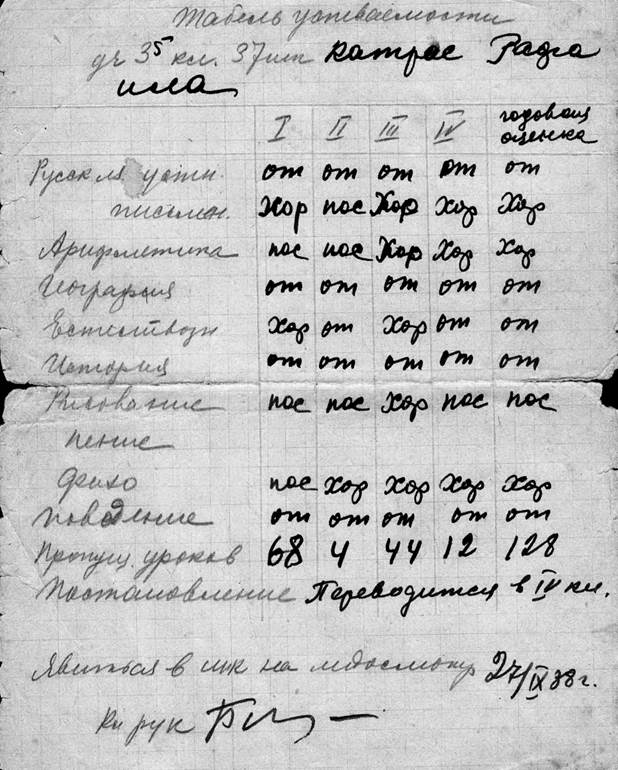 Табель успеваемости
уч 3⁵ кл. 37 шк Катрас Рафа
ила
I II III IV годовая оценка
Русск яз устн. от от от от от
письмен. Хор пос Хор Хор Хор
Арифметика пос пос Хор Хор Хор
География от от от от от
Естествозн Хор от Хор от от
История от от от от от
Рисование пос пос Хор пос пос
пение
Физо пос Хор Хор Хор Хор
поведение от от от от от
Пропущ. уроков 68 4 44 12 128
Постановление Переводится в IV кл.
Явиться в шк на медосмотр 27/IX 38 г.
Кл рук